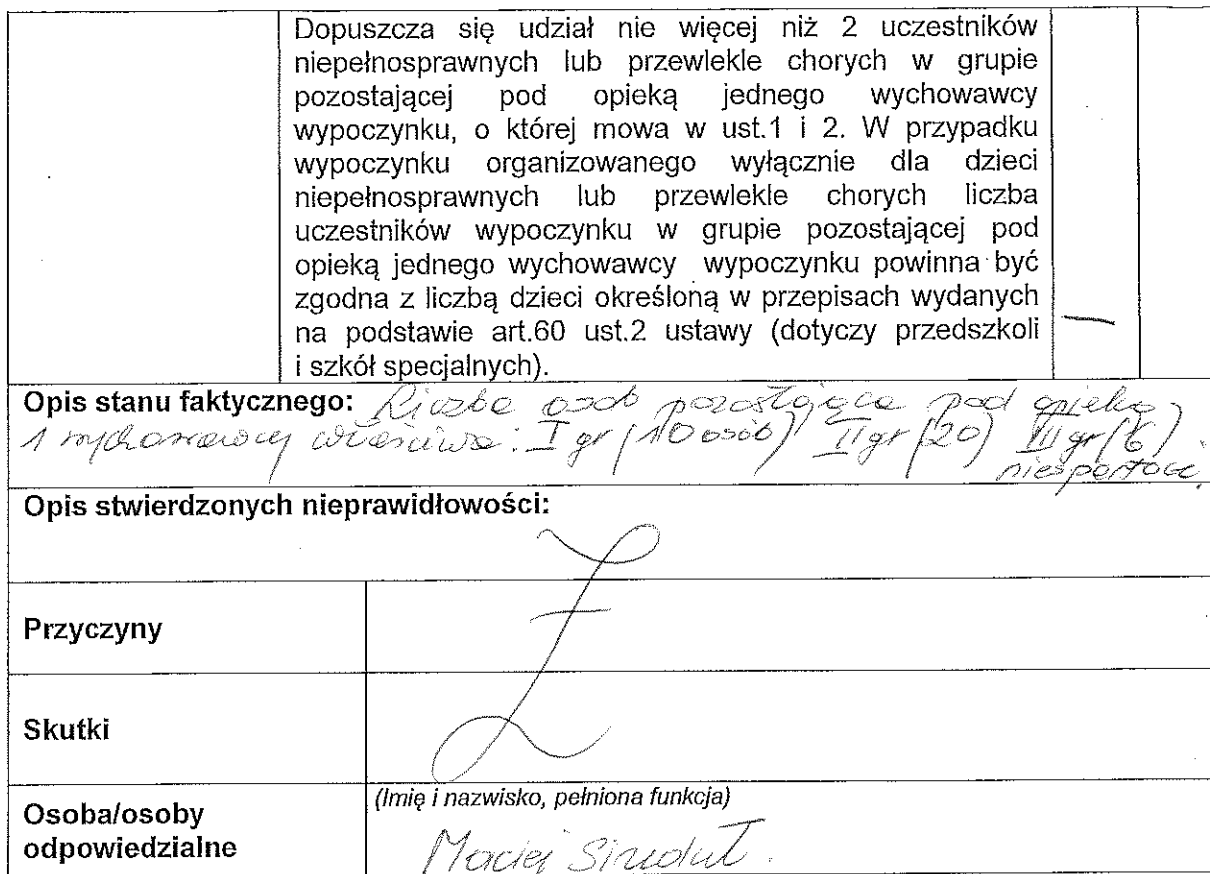 Dopuszcza się udział nie więcej niż 2 uczestników
niepełnosprawnych lub przewlekle chorych w grupie
pozostającej pod opieką jednego wychowawcy
wypoczynku, o której mowa w ust.1 i 2. W przypadku
wypoczynku organizowanego wyłącznie dla dzieci
niepełnosprawnych lub przewlekle chorych liczba
uczestników wypoczynku w grupie pozostającej pod
opieką jednego wychowawcy wypoczynku powinna być
zgodna z liczbą dzieci określoną w przepisach wydanych
na podstawie art.60 ust.2 ustawy (dotyczy przedszkoli
i szkół specjalnych).
—
Opis stanu faktycznego: Liczba osób pozostająca pod opieką
1 wychowawcy właściwa: I gr (10 osób) II gr (20) III gr (6)
Opis stwierdzonych nieprawidłowości:
Przyczyny
Skutki
Osoba/osoby
odpowiedzialne
(Imię i nazwisko, pełniona funkcja)
Maciej